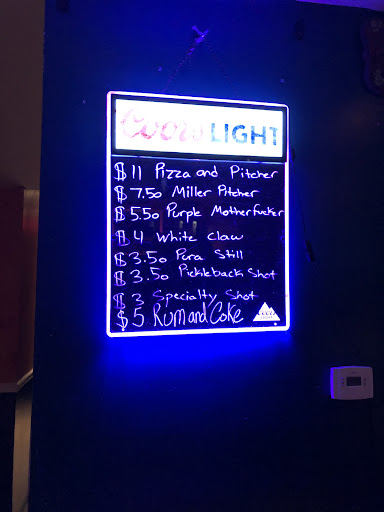 Coors LIGHT
$11 Pizza and Pitcher
$7.50 Miller Pitcher
$5.50 Purple Motherfucker
$4 White Claw
$3.50 Pura Still
$3.50 Pickleback Shot
$3 Specialty Shot
$5 Rum and Coke